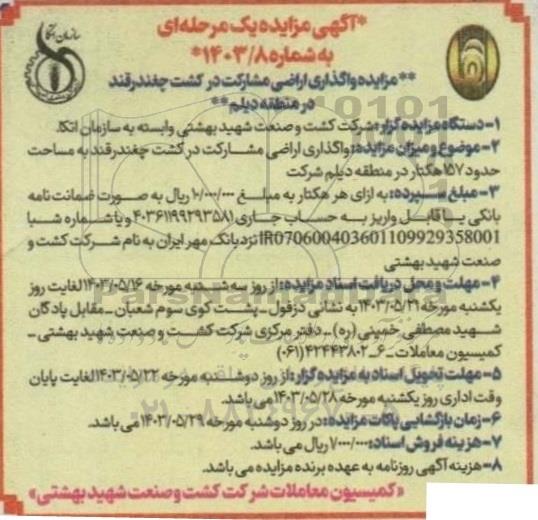 *آگهی مزایده یک مرحله‌ای
به شماره ۱۴۰۳/۸*
**مزایده واگذاری اراضی مشارکت در کشت چغندرقند
در منطقه دیلم**
۱-دستگاه مزایده گزار: شرکت کشت و صنعت شهید بهشتی وابسته به سازمان اتکا.
۲-موضوع و میزان مزایده: واگذاری اراضی مشارکت در کشت چغندرقند به مساحت
حدود ۱۵۷ هکتار در منطقه دیلم شرکت
۳-مبلغ سپرده: به ازای هر هکتار به مبلغ ۱۰/۰۰۰/۰۰۰ ریال به صورت ضمانت نامه
بانکی یا قابل واریز به حساب جاری ۴۰۳۶۱۱۹۹۲۹۳۵۸۱ و یا شماره شبا
IR070600403601109929358001 نزد بانک مهر ایران به نام شرکت کشت و
صنعت شهید بهشتی
۴-مهلت و محل دریافت اسناد مزایده: از روز سه شنبه مورخه ۱۴۰۳/۰۵/۱۶ لغایت روز
یکشنبه مورخه ۱۴۰۳/۰۵/۲۱ به نشانی دزفول-پشت کوی سوم شعبان-مقابل پادگان
شهید مصطفی خمینی (ره)-دفتر مرکزی شرکت کشت و صنعت شهید بهشتی-
کمیسیون معاملات-۶-۴۲۴۴۳۸۰۲ (۰۶۱)
۵-مهلت تحویل اسناد به مزایده گزار: از روز دوشنبه مورخه ۱۴۰۳/۰۵/۲۲ لغایت پایان
وقت اداری روز یکشنبه مورخه ۱۴۰۳/۰۵/۲۸ می باشد.
۶-زمان بازگشایی پاکات مزایده: در روز دوشنبه مورخه ۱۴۰۳/۰۵/۲۹ می باشد.
۷-هزینه فروش اسناد: ۷۰۰/۰۰۰ ریال می باشد.
۸-هزینه آگهی روزنامه به عهده برنده مزایده می باشد.
«کمیسیون معاملات شرکت کشت و صنعت شهید بهشتی»
سازمان اتکا